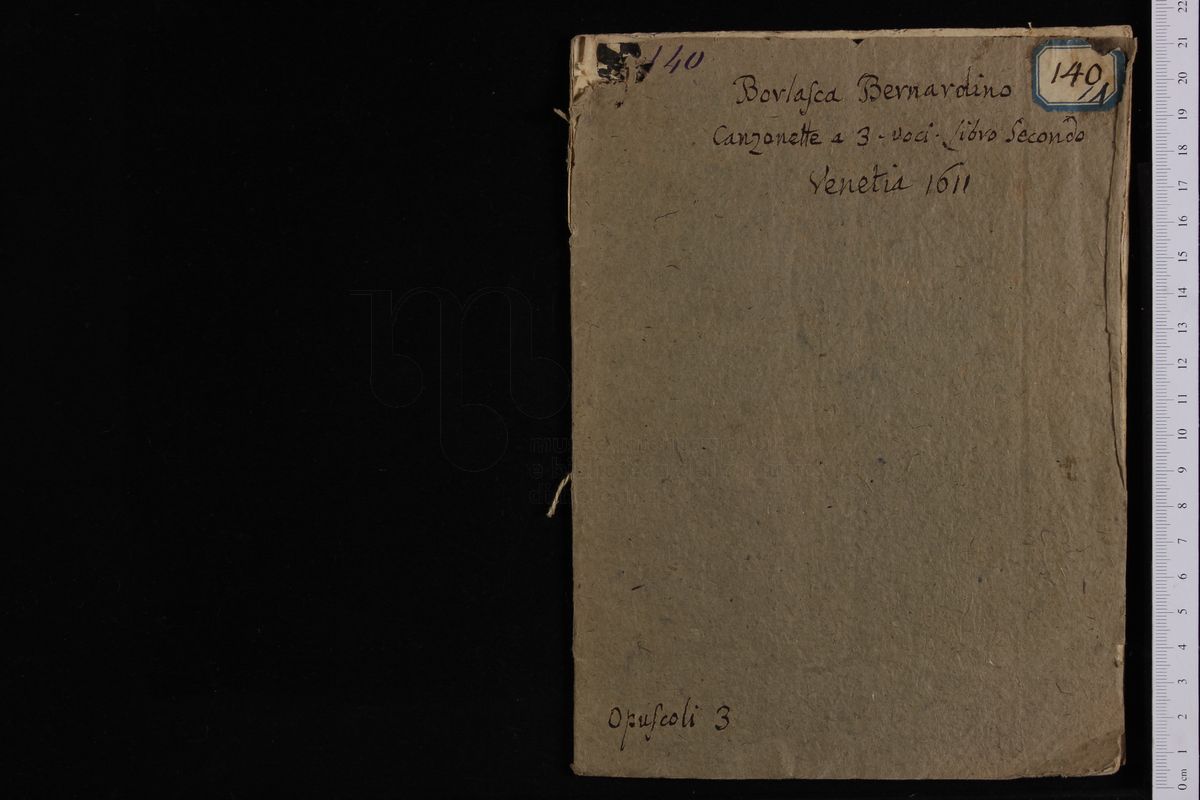 140
140
/1
Borlaſca Bernardino
Canzonette a 3 voci. Libro Secondo
Venetia 1611
Opuſcoli 3
22
21
20
19
18
17
16
15
14
13
12
11
10
9
8
7
6
5
4
3
2
1
0 cm